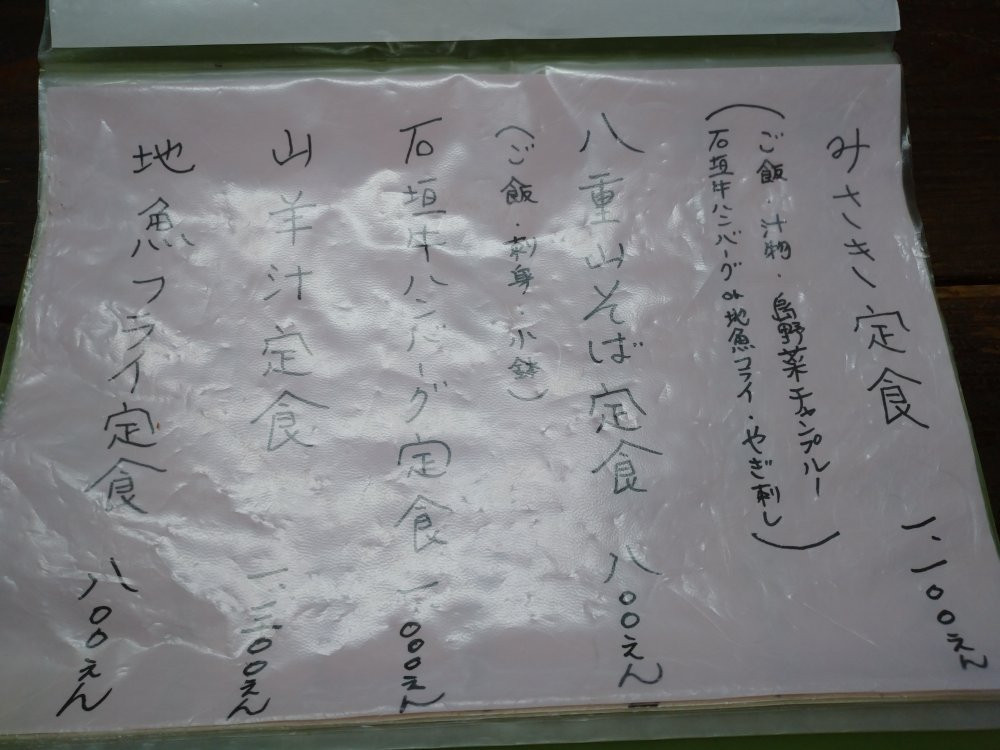 みさき定食 一、一〇〇えん
(ご飯・汁物・島野菜チャンプルー
石垣牛ハンバーグor地魚フライ・やぎ刺し)
八重山そば定食 八〇〇えん
(ご飯・刺身・小鉢)
石垣牛ハンバーグ定食 一、〇〇〇えん
山羊汁定食 一、三〇〇えん
地魚フライ定食 八〇〇えん